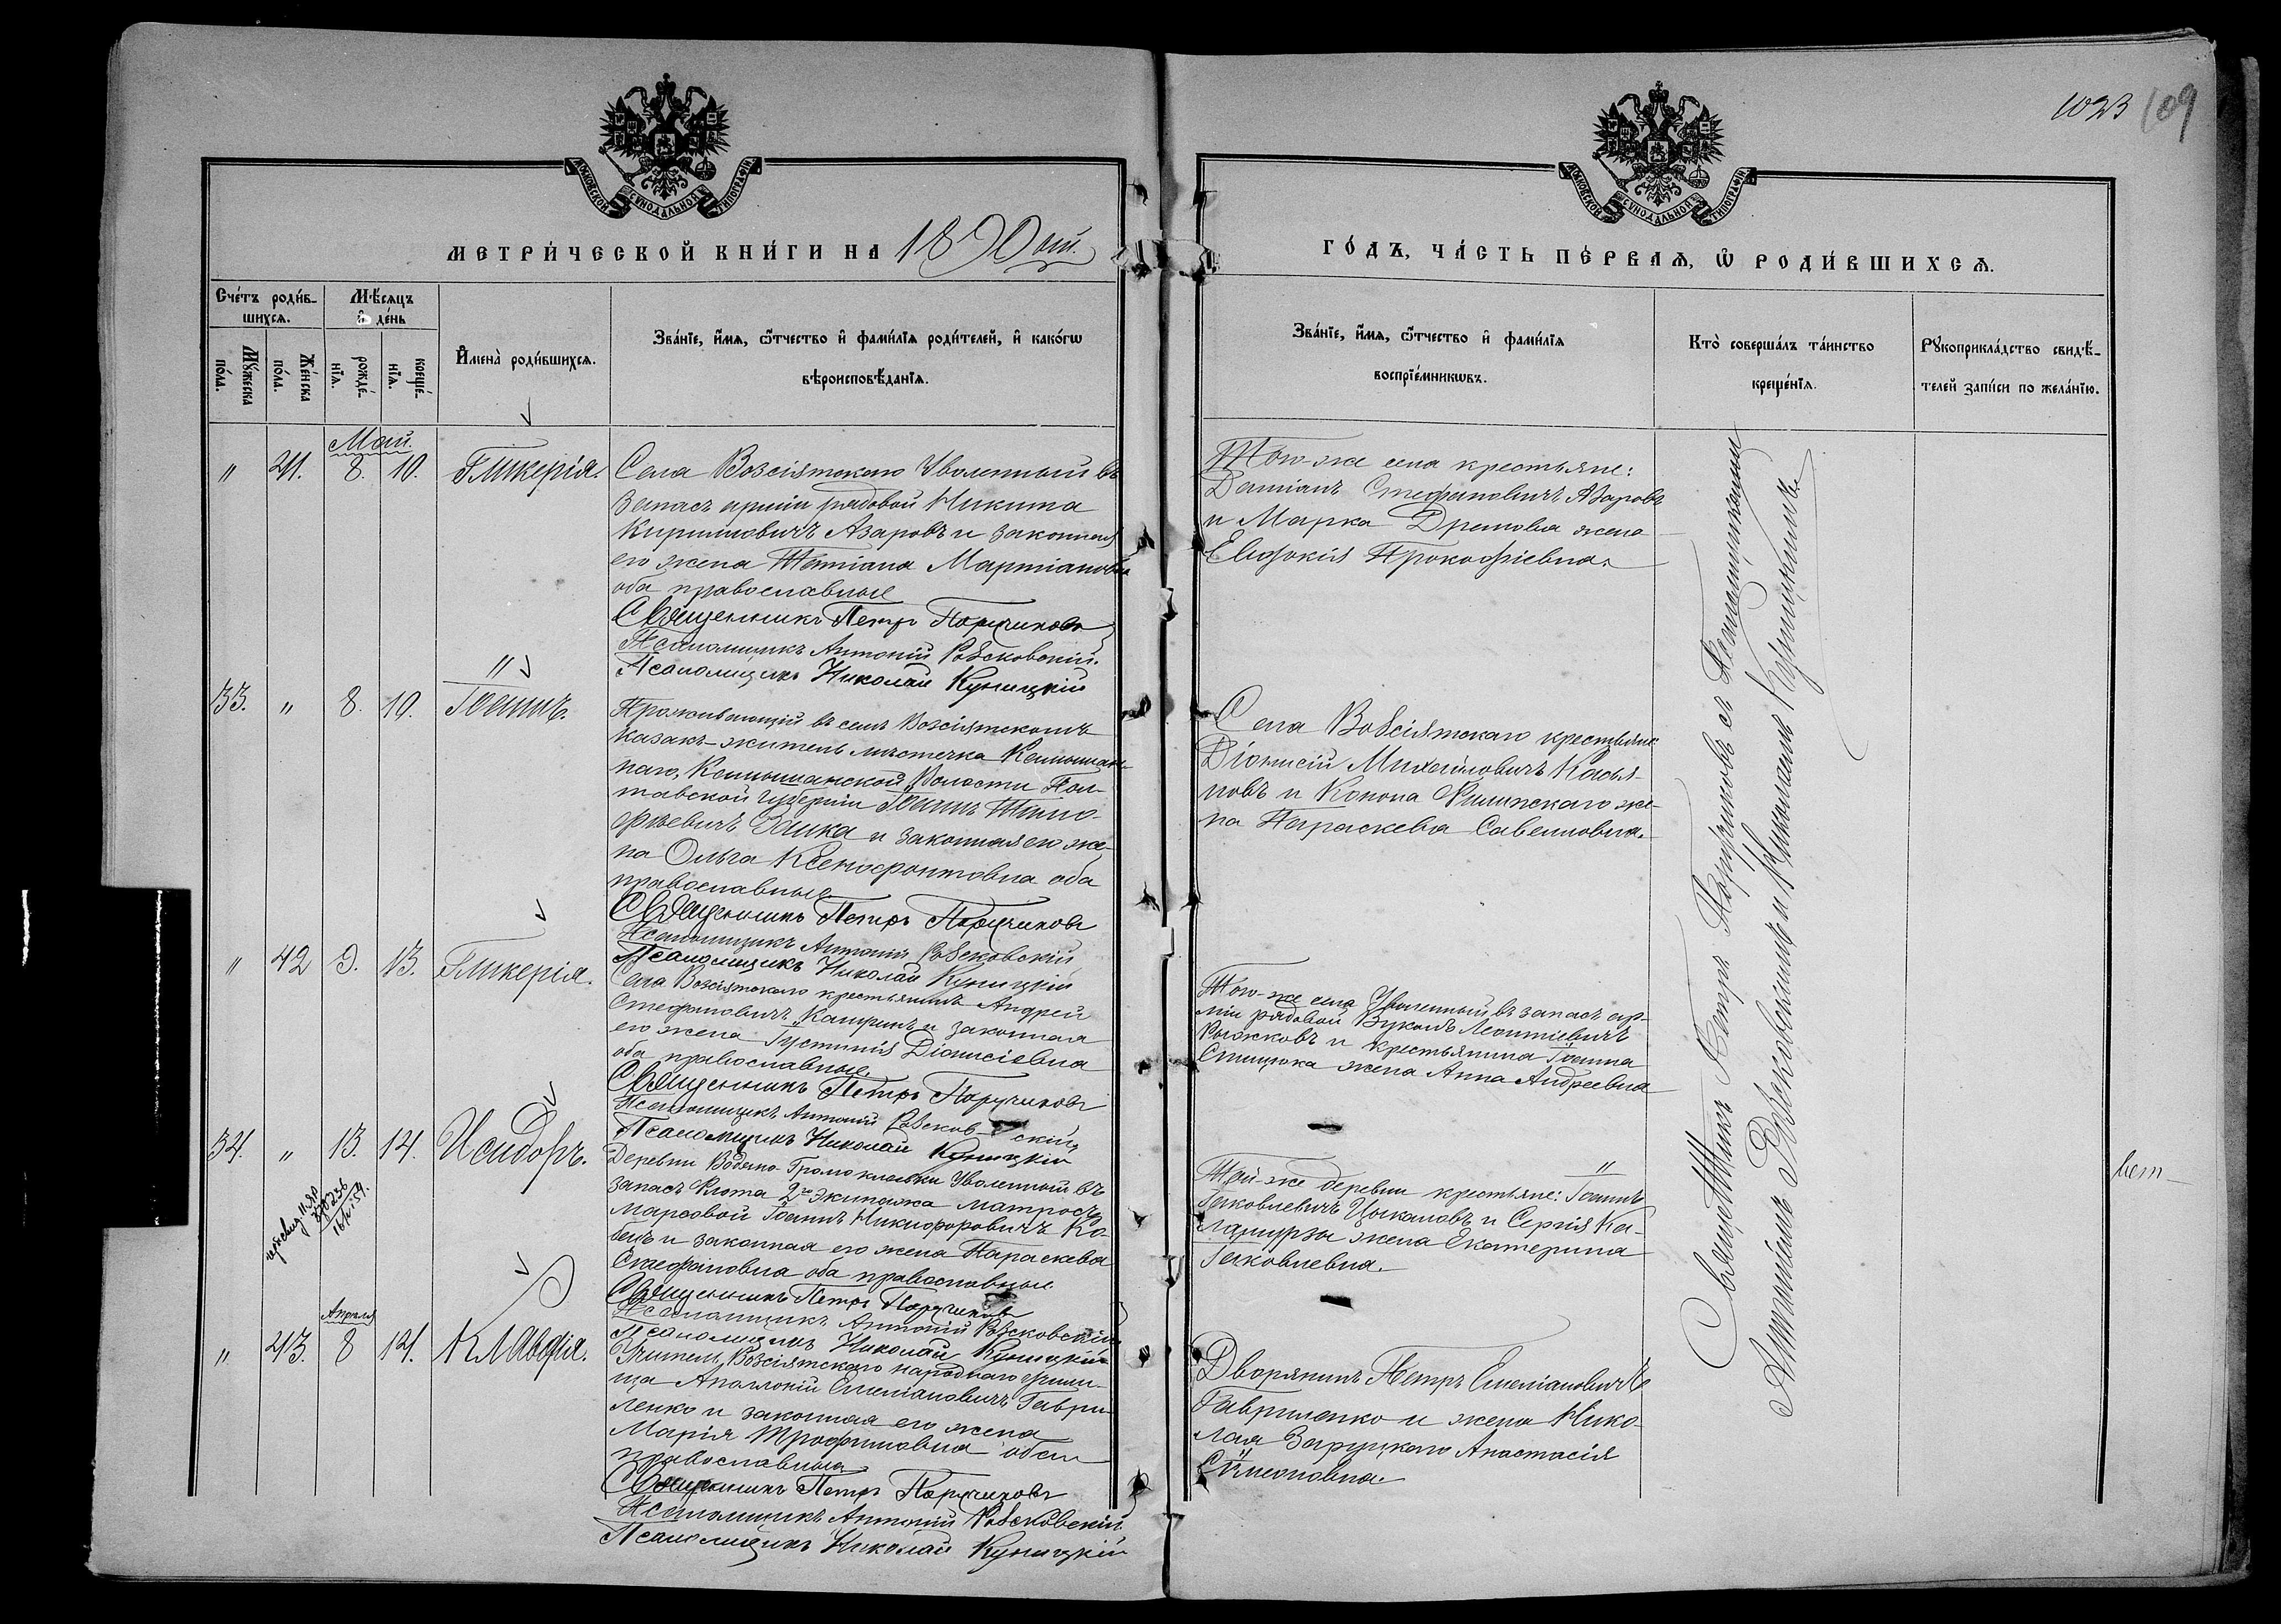 1023 109
МОСКОВСКОЙ СѴНОДАЛЬНОЙ ТИПОГРАФІИ
МОСКОВСКОЙ СѴНОДАЛЬНОЙ ТИПОГРАФІИ
МЕТРИ́ЧЕСКОЙ КНИ́ГИ НА 1890 ый.
ГО́ДЪ, ЧА́СТЬ ПЕ́РВАѦ, Ѡ҆ РОДИ́ВШИХСѦ.
Сче́тъ роди́в-
шихсѧ.
Мѣ́сѧцъ
и҆ де́нь
Мꙋ́жеска
по́ла.
Же́нска
по́ла.
рожде́-
нїѧ.
креще́-
нїѧ.
И҆мена̀ роди́вшихсѧ.
Зва́нїе, и҆́мѧ, ѻ҆́тчество и҆ фами́лїѧ роди́телей, и҆ како́гѡ
вѣроисповѣ́данїѧ.
Зва́нїе, и҆́мѧ, ѻ҆́тчество и҆ фами́лїѧ
воспрїе́мникѡвъ.
Кто̀ соверша́лъ та́инство
креще́нїѧ.
Рꙋкоприкла́дство свидѣ́-
телей за́писи по жела́нїю.
Май.
" 41. 8. 10. Гликерія.
Села Возсіятскаго Уволенный въ
запасъ арміи рядовой Никита
Кирилловичъ Азаровъ и законная
его жена Татіана Мартіановна
оба православные
Священникъ Петръ Поручиковъ
Псаломщикъ Антоній Рабсковскій.
Псаломщикъ Николай Куницкій
Того-же села крестьяне:
Даміанъ Стефановичъ Азаровъ
и Марка жена
Евдокія Прокофіевна.
33. " 8. 10. Іоаннъ.
Проживающій въ селѣ Возсіятскомъ
казакъ-житель мѣстечка Камышан-
наго, Камышанской Волости Пол-
тавской губерніи Іоаннъ Тимо-
фѣевичъ Заика и законная его же-
на Ольга Ксенофонтовна оба
православные
Священникъ Петръ Поручиковъ
Псаломщикъ Антоній Рабсковскій
Псаломщикъ Николай Куницкій
Села Возсіятскаго крестьяне:
Діонисій Михайловичъ Касья-
новъ и Конона Жилинскаго же-
на Параскева Савелловна.
" 42 9. 13. Гликерія.
Села Возсіятскаго крестьянинъ Андрей
Стефановичъ и законная
его жена Іустинія Діонисіевна
оба православные.
Священникъ Петръ Поручиковъ
Псаломщикъ Антоній Рабсков-скій
Псаломщикъ Николай Куницкій
Того-же села Уволенный въ запасъ ар-
міи рядовой Вуколъ Леонтіевичъ
Рыжковъ и крестьянина Іоанна
жена Анна Андреевна
34. " 13. 14. Исидоръ.
Деревни Водяно-Громоклеи Уволенный въ
запасъ Флота 2го экипажа матросъ
марсовой Іоаннъ Никифоровичъ Ко-
бецъ и законная его жена Параскева
Стефановна оба православные
Священникъ Петръ Поручиковъ
Псаломщикъ Антоній Рабсковскій
Псаломщикъ Николай Куницкій
Той-же деревни крестьяне: Іоаннъ
Іаковлевичъ Цыкаловъ и Сергія Ка-
ламурзы жена Екатерина
Іаковлевна.
Апрѣля
" 43. 8 14. Клавдія.
Учитель Возсіятскаго народнаго учили-
ща Аполлоній Емеліановичъ Гаври-
ленко и законная его жена
Марія Трофимовна обеи
православныи
Священникъ Петръ Поручиковъ
Псаломщикъ Антоній Рабсковскій
Псаломщикъ Николай Куницкій
Дворянинъ Петръ Емеліановичъ
Гавриленко и жена Нико-
лая Заруцкаго Анастасія
Симеоновна.
Священникъ Петръ Поручиковъ съ псаломщиками
Антоніемъ Рабсковскимъ и Николаемъ Куницкимъ.